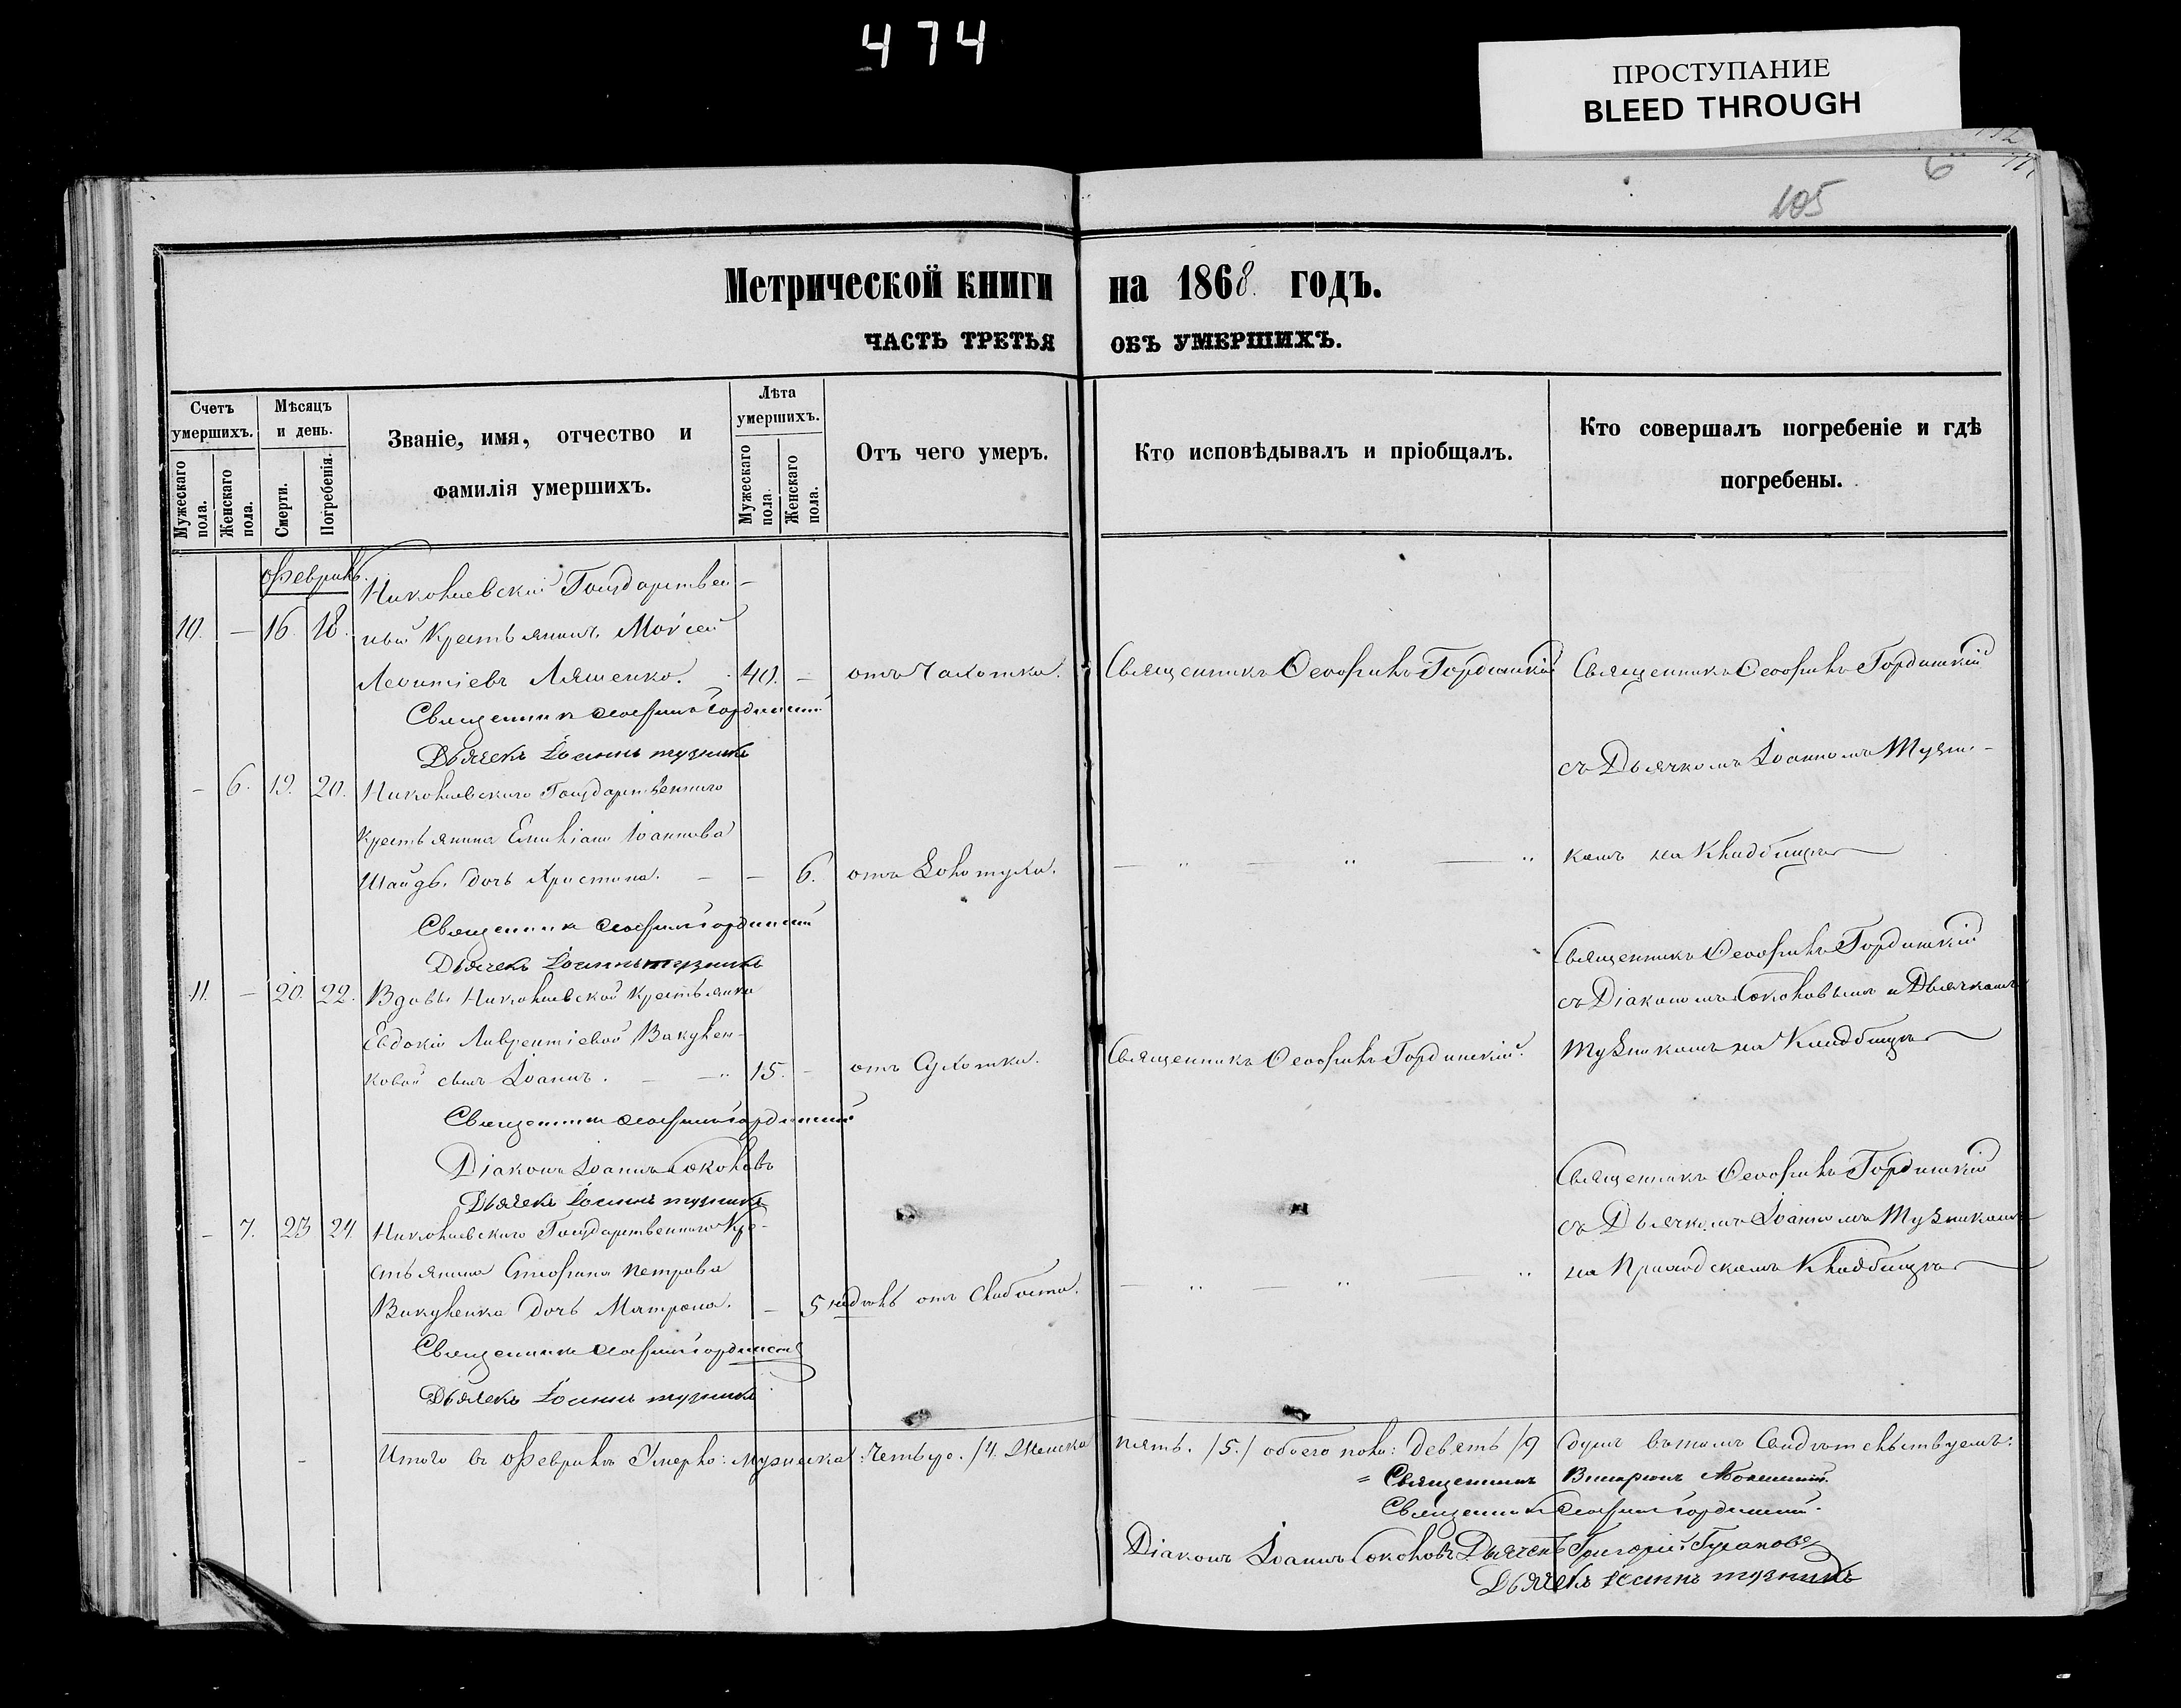 474
ПРОСТУПАНИЕ
BLEED THROUGH
6
105
Метрической книги на 1868 годъ.
ЧАСТЬ ТРЕТЬЯ ОБЪ УМЕРШИХЪ.
Счетъ умершихъ.
Мужескаго пола.
Женскаго пола.
Мѣсяцъ и день.
Смерти.
Погребенія.
Званіе, имя, отчество и фамилія умершихъ.
Лѣта умершихъ.
Мужескаго пола.
Женскаго пола.
Отъ чего умеръ.
Кто исповѣдывалъ и пріобщалъ.
Кто совершалъ погребеніе и гдѣ погребены.
Февраль.
Николаевскій Государствен-
10. — 16. 18. ный Крестьянинъ Моѵсей
Леонтіевъ Ляшенко. 40. — отъ Чахотки. Священникъ Ѳеофилъ Гординскій Священникъ Ѳеофилъ Гординскій
Священникъ Ѳеофилъ Гординскій
Дьячекъ Іоаннъ Музыка
съ Дьячкомъ Іоанномъ Музы-
— 6. 19. 20. Николаевскаго Государственнаго
Крестьянина Емиліана Іоаннова
дочь Христина. — — 6. отъ Золотухи. — " — " — " комъ на Кладбищѣ
Священникъ Ѳеофилъ Гординскій
Дьячекъ Іоаннъ Музыка
Священникъ Ѳеофилъ Гординскій
11. — 20. 22. Вдовы Николаевской Крестьянки
съ Діакономъ Соколовымъ и Дьячкомъ
Евдокіи Лаврентіевой Вакулен-
Музыкомъ на Кладбищѣ
ковой сынъ Іоаннъ. — — " 15. — отъ Сухотки. Священникъ Ѳеофилъ Гординскій.
Священникъ Ѳеофилъ Гординскій
Діаконъ Іоаннъ Соколовъ
Дьячекъ Іоаннъ Музыка
Священникъ Ѳеофилъ Гординскій
— 7. 23 24. Николаевскаго Государственнаго Кре-
съ Дьячкомъ Іоанномъ Музыкомъ
стьянина Стефана Петрова
на Приходскомъ Кладбищѣ
Вакуленка дочь Матрона. — 5 недѣль отъ Слабости. — " — " — "
Священникъ Ѳеофилъ Гординскій
Дьячекъ Іоаннъ Музыка
Итого въ Февралѣ Умерло: мужеска: Четыре. /4. Женска пять. /5./ обоего пола: девять /9 душъ въ томъ Свидѣтельствуемъ:
Священникъ
Священникъ Ѳеофилъ Гординскій.
Діаконъ Іоаннъ Соколовъ Дьячекъ Григорій
Дьячекъ Іоаннъ Музыка